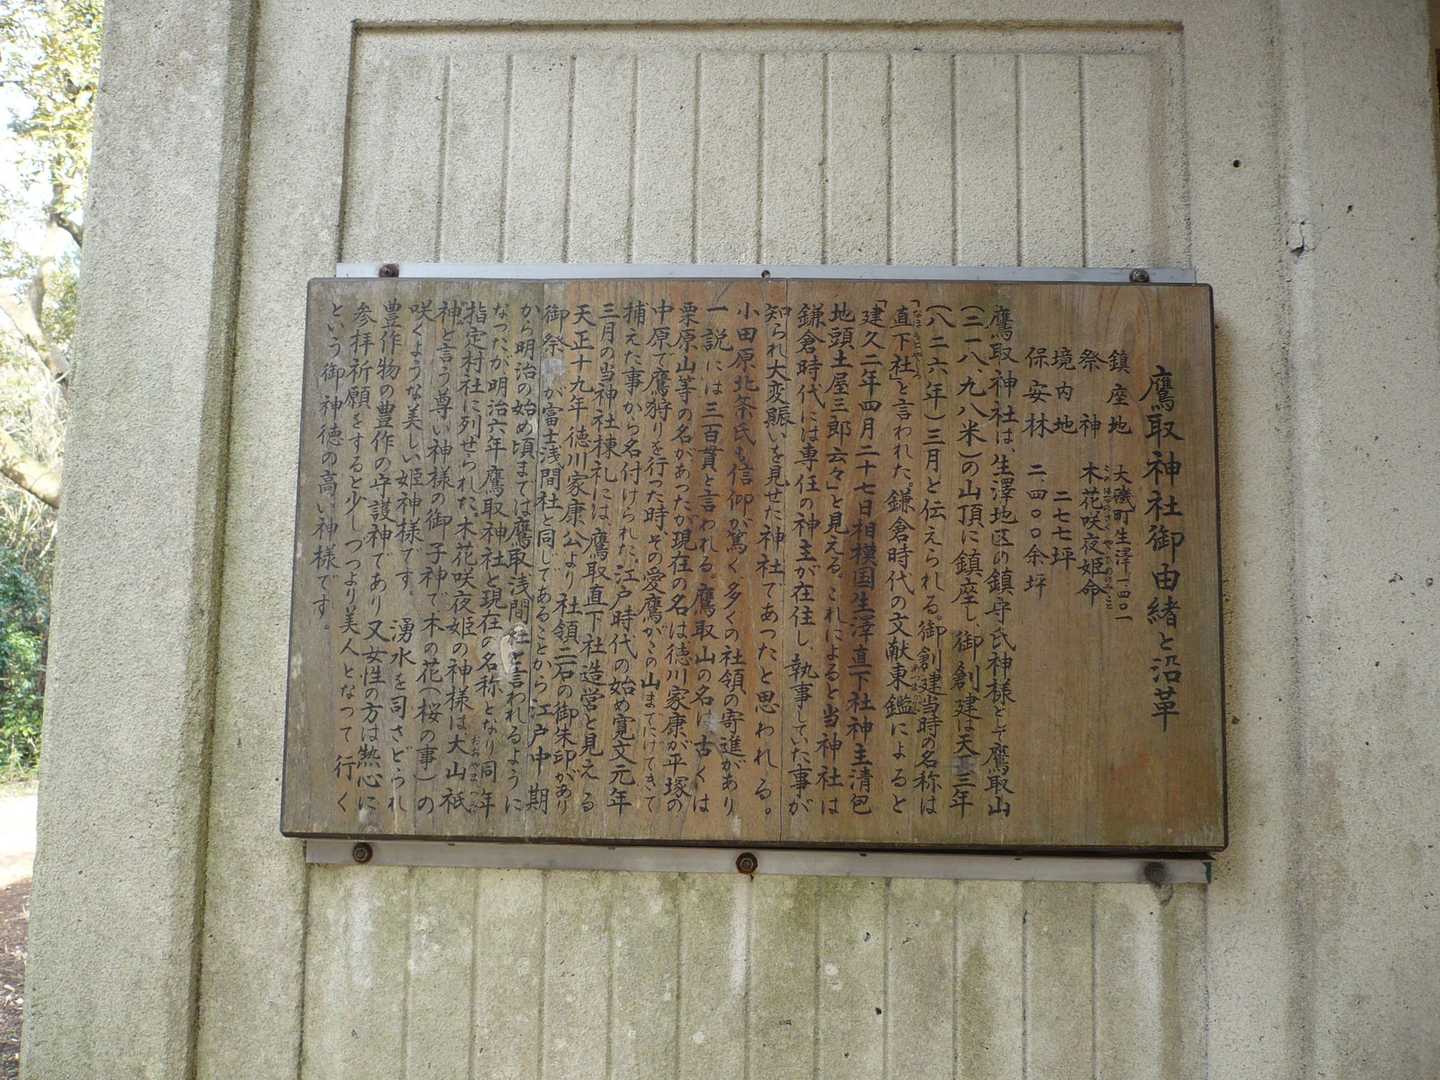 鷹取神社御由緒と沿革
鎮座地 大磯町生澤一四〇一
祭神 木花咲夜姫命
境内地 二七七坪
保安林 二、四〇〇余坪
鷹取神社は、生澤地区の鎮守氏神様として鷹取山
(二一八、九八米)の山頂に鎮座し、御創建は天長三年
(八二六年)三月と伝えられる。御創建当時の名称は
「直下社」と言われた。鎌倉時代の文献東鑑によると
「建久二年四月二十七日相模国生澤直下社神主清包
地頭土屋三郎云々」と見える。これによると当神社は
鎌倉時代には専任の神主が在住し、執事していた事が
知られ大変賑いを見せた神社であつたと思われる。
小田原北条氏も信仰が篤く多くの社領の寄進があり
一説には三百貫と言われる。鷹取山の名は古くは
栗原山等の名があつたが現在の名は徳川家康が平塚の
中原で鷹狩りを行つた時、その愛鷹がこの山までにげてきて
捕えた事から名付けられた。江戸時代の始め寛文元年
三月の当神社棟札には、鷹取直下社造営と見える
天正十九年徳川家康公より社領二石の御朱印があり
御祭 が富士浅間社と同じであることから江戸中期
から明治の始め頃までは鷹取浅間社と言われるように
なつたが明治六年鷹取神社と現在の名称となり同年
指定村社に列せられた。木花咲夜姫の神様は大山祇
神と言う尊い神様の御子神で木の花(桜の事)の
咲くような美しい姫神様です。 湧水を司さどられ
豊作物の豊作の守護神であり又女性の方は熱心に
参拝祈願をすると少しづつより美人となつて行く
という御神徳の高い神様です。